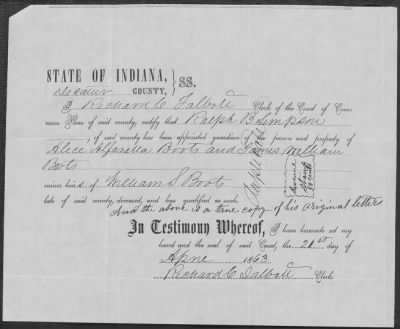 STATE OF INDIANA,
Decatur COUNTY, } SS.
I, Richard C Talbott Clerk of the Court of Com-
mon Pleas of said county, certify that Ralph B Simpson
, of said county has been appointed guardian of the person and property of
Alice Alfaretta Boots and James William
Boots
minor heirs of William S Boots
late of said county, deceased, and has qualified as such.
And the above is a true copy of his original letters
In Testimony Whereof, I have hereunto set my
hand and the seal of said Court, the 21st day of
1863
Richard C Talbott Clerk